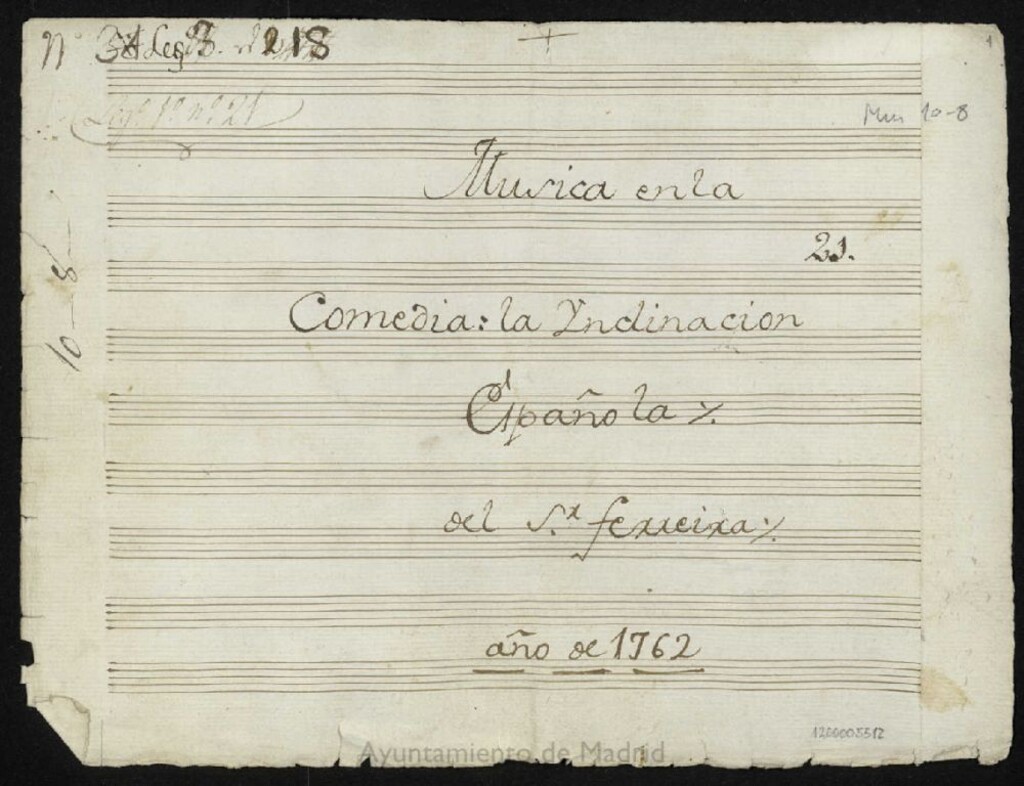 Nº 34 Leg 3. 218
Legº 1º nº 21
Mus 10-8
1
Musica en la
21.
10-8-
Comedia: la Ynclinacion
Española %.
del S.r ferreira %.
año de 1762
1200005512
Ayuntamiento de Madrid